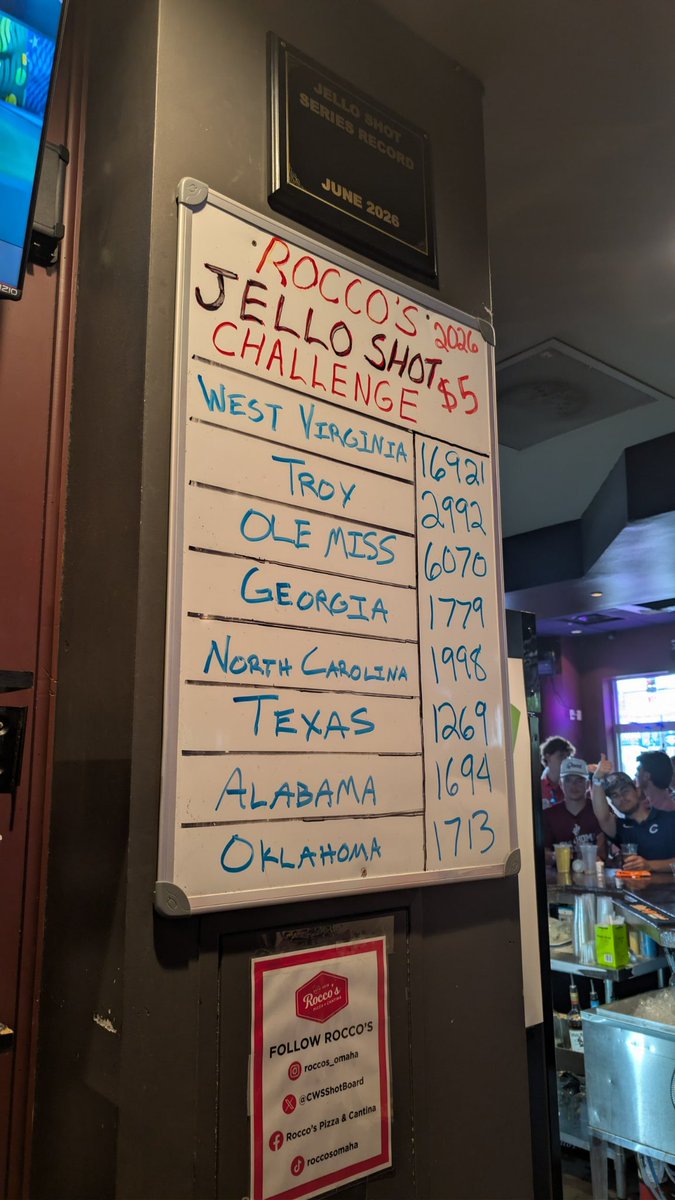 JELLO SHOT
SERIES RECORD
JUNE 2026
ROCCO'S 2026
JELLO SHOT
CHALLENGE $5
WEST VIRGINIA 16921
TROY 2992
OLE MISS 6070
GEORGIA 1779
NORTH CAROLINA 1998
TEXAS 1269
ALABAMA 1694
OKLAHOMA 1713
Rocco's
PIZZA + CANTINA
FOLLOW ROCCO'S
roccos_omaha
@CWSShotBoard
Rocco's Pizza & Cantina
roccosomaha